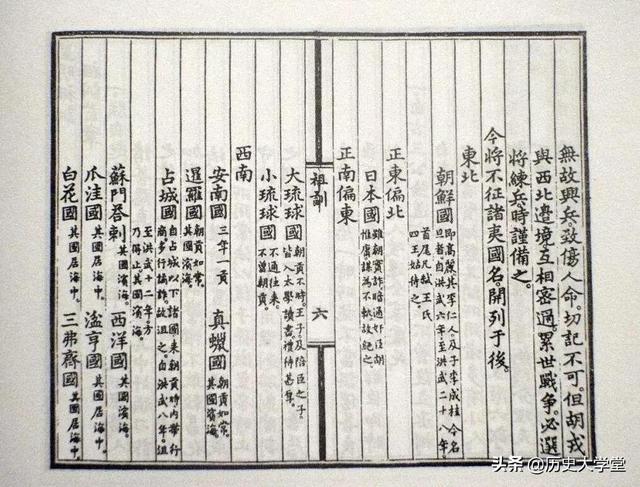 無故興兵。致傷人命。切記不可。但胡戎
與西北邊境。互相密邇。累世戰爭。必選
將練兵。時謹備之。
今將不征諸夷國名。開列于後。
東北
朝鮮國 即高麗。其李仁人。及子李成桂今名
旦者。自洪武六年。至洪武二十八年。
首尾凡弑王氏
四王。姑待之。
正東偏北
日本國 雖朝實詐。暗通奸臣胡
惟庸。謀為不軌。故絶之。
正南偏東
大琉球國 朝貢不時。王子及陪臣之子。
皆入太學讀書。禮待甚厚。
小琉球國 不通往來。
不曾朝貢。
西南
安南國 三年一貢 真蠟國 朝貢如常。
其國濱海。
暹羅國 朝貢如常。
其國濱海。
占城國 自占城以下諸國。來朝貢時。內帶行
商。多行譎詐。故沮之。自洪武八年。沮
至洪武十二年。方
乃得止。其國濱海。
蘇門荅剌 其國濱海。 西洋國 其國濱海。
爪洼國 其國居海中。 湓亨國 其國居海中。
白花國 其國居海中。 三弗齊國 其國居海中。
祖訓
六
头条 @历史大学堂